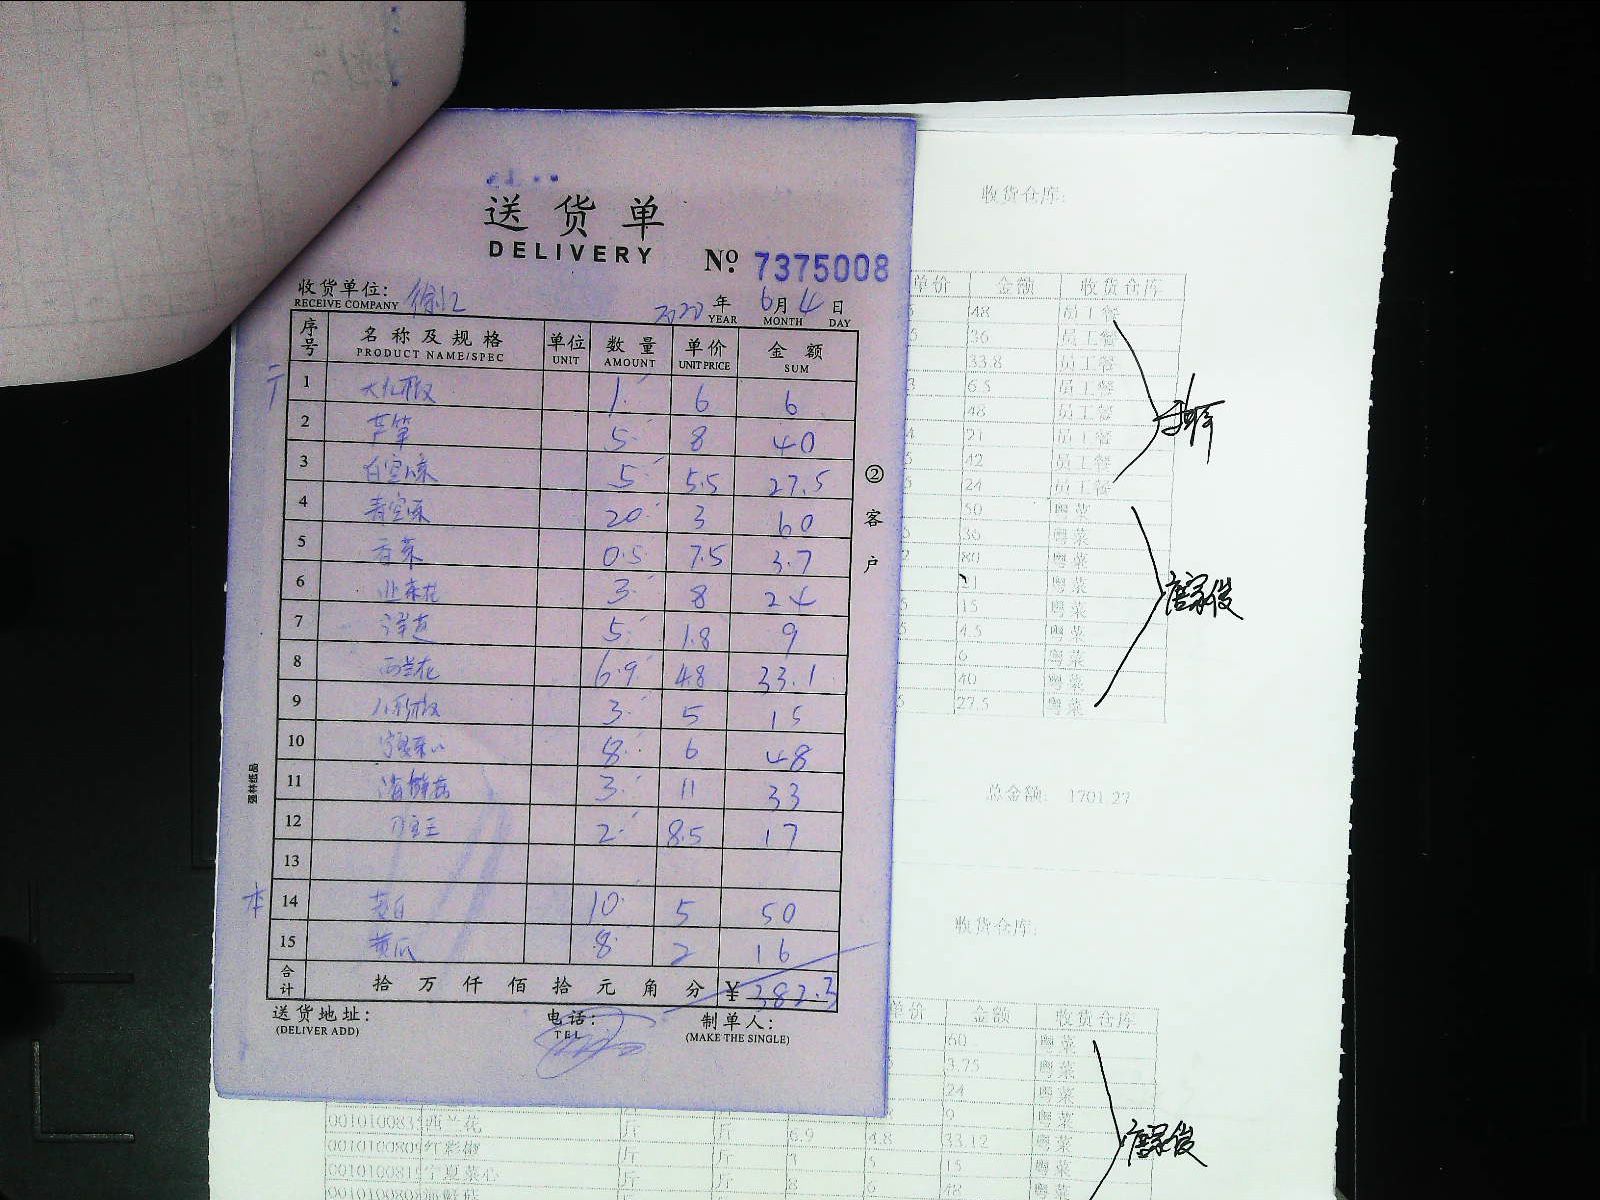 送货单
DELIVERY
No. 7375008
收货单位:
RECEIVE COMPANY
2020 年 6 月 4 日
YEAR MONTH DAY
序号 名称及规格 单位 数量 单价 金额
PRODUCT NAME/SPEC UNIT AMOUNT UNIT PRICE SUM
1 大红椒 1 6 6
2 芦笋 5 8 40
3 5 5.5 27.5
4 20 3 60
5 香菜 0.5 7.5 3.7
6 韭菜花 3 8 24
7 洋葱 5 1.8 9
8 西兰花 6.9 4.8 33.1
9 3 5 15
10 宁夏菜心 8 6 48
11 海鲜菇 3 11 33
12 2 8.5 17
13
14 茭白 10 5 50
15 黄瓜 8 2 16
合计 拾 万 仟 佰 拾 元 角 分 ¥ 382.3
送货地址:
(DELIVER ADD)
电话:
TEL
制单人:
(MAKE THE SINGLE)
②客户
强林纸品
收货仓库:
单价 金额 收货仓库
48 员工餐
36 员工餐
33.8 员工餐
6.5 员工餐
48 员工餐
21 员工餐
42 员工餐
24 员工餐
50 粤菜
36 粤菜
80 粤菜
21 粤菜
15 粤菜
4.5 粤菜
6 粤菜
40 粤菜
27.5 粤菜
唐家俊
总金额: 1701.27
收货仓库:
单价 金额 收货仓库
60 粤菜
3.75 粤菜
24 粤菜
9 粤菜
西兰花 斤 斤 6.9 4.8 33.12 粤菜
红彩椒 斤 斤 3 5 15 粤菜
宁夏菜心 斤 斤 8 6 48 粤菜
唐家俊